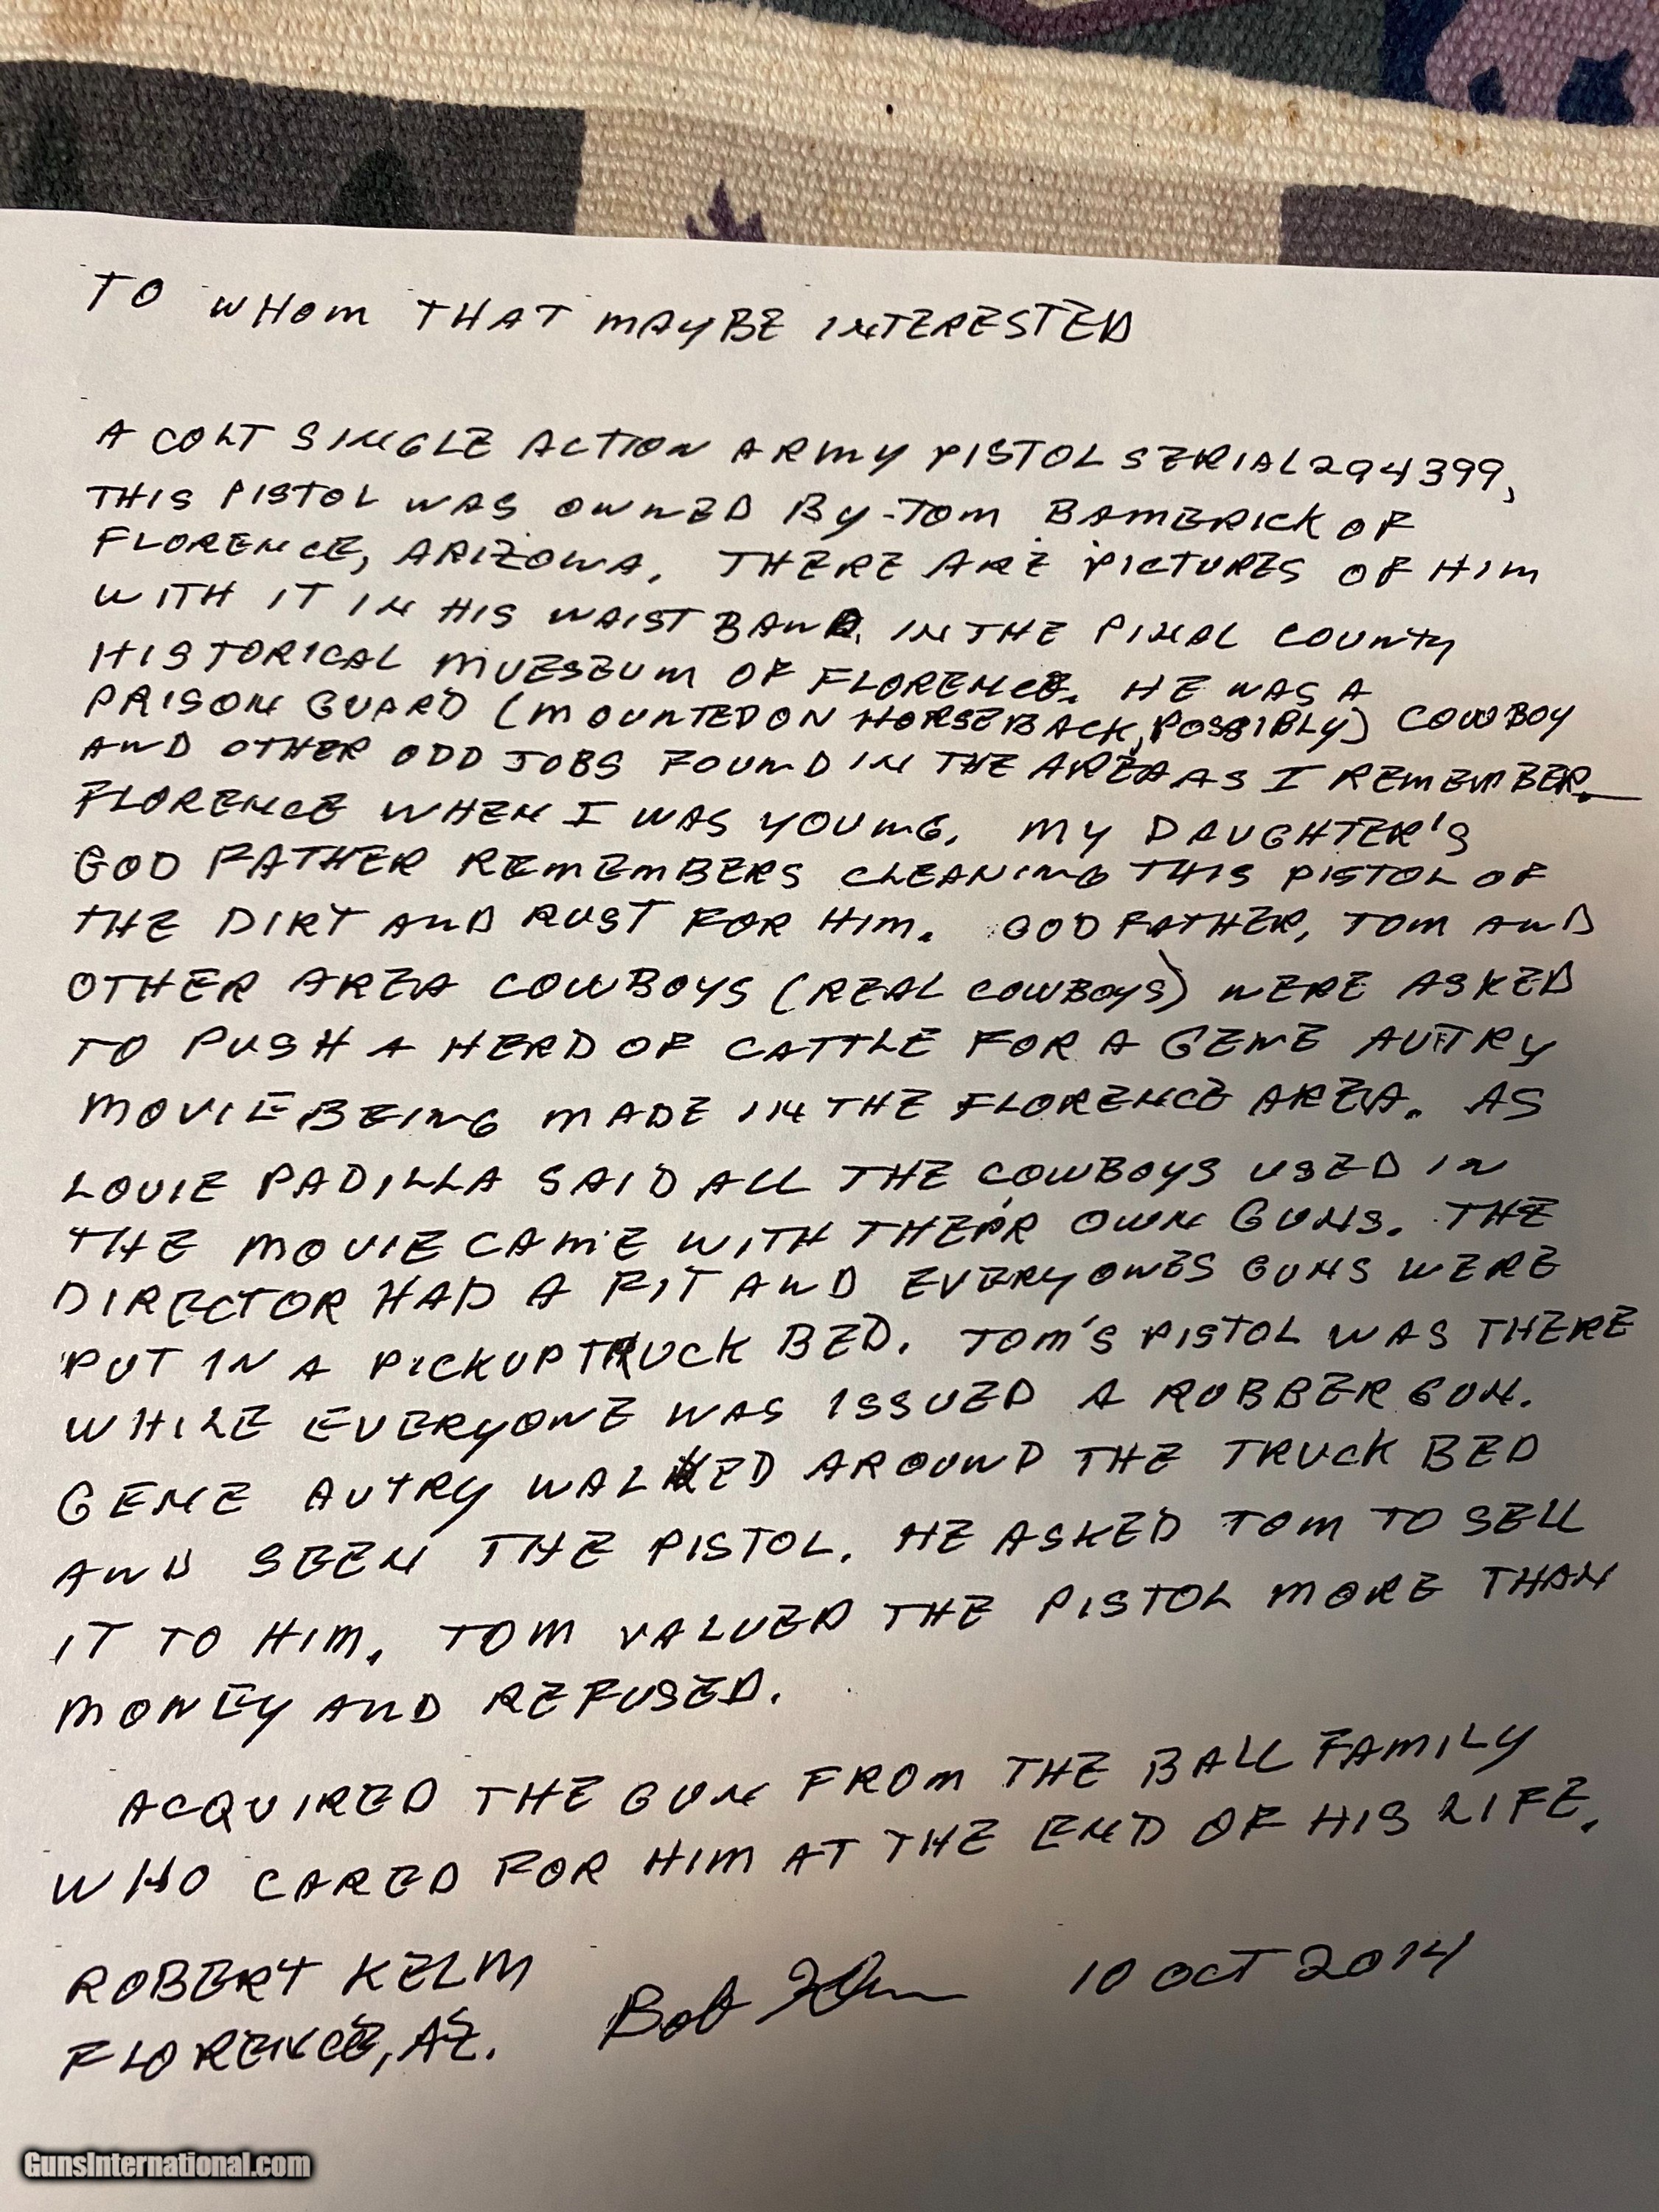 TO WHOM THAT MAYBE INTERESTED
A COLT SINGLE ACTION ARMY PISTOL SERIAL 294399,
THIS PISTOL WAS OWNED BY TOM BAMERICK OF
FLORENCE, ARIZONA. THERE ARE PICTURES OF HIM
WITH IT IN HIS WAIST BAND. IN THE PINAL COUNTY
HISTORICAL MUESEUM OF FLORENCE. HE WAS A
PRISON GUARD (MOUNTED ON HORSEBACK, POSSIBLY) COWBOY
AND OTHER ODD JOBS FOUND IN THE AREA AS I REMEMBER
FLORENCE WHEN I WAS YOUNG. MY DAUGHTER'S
GOD FATHER REMEMBERS CLEANING THIS PISTOL OF
THE DIRT AND RUST FOR HIM. GOD FATHER, TOM AND
OTHER AREA COWBOYS (REAL COWBOYS) WERE ASKED
TO PUSH A HERD OF CATTLE FOR A GENE AUTRY
MOVIE BEING MADE IN THE FLORENCE AREA. AS
LOUIE PADILLA SAID ALL THE COWBOYS USED IN
THE MOVIE CAME WITH THEIR OWN GUNS. THE
DIRECTOR HAD A FIT AND EVERYONES GUNS WERE
PUT IN A PICKUP TRUCK BED. TOM'S PISTOL WAS THERE
WHILE EVERYONE WAS ISSUED A RUBBER GUN.
GENE AUTRY WALKED AROUND THE TRUCK BED
AND SEEN THE PISTOL. HE ASKED TOM TO SELL
IT TO HIM. TOM VALUED THE PISTOL MORE THAN
MONEY AND REFUSED.
ACQUIRED THE GUN FROM THE BALL FAMILY
WHO CARED FOR HIM AT THE END OF HIS LIFE.
ROBERT KELM Bob Kelm 10 OCT 2014
FLORENCE, AZ.
GunsInternational.com